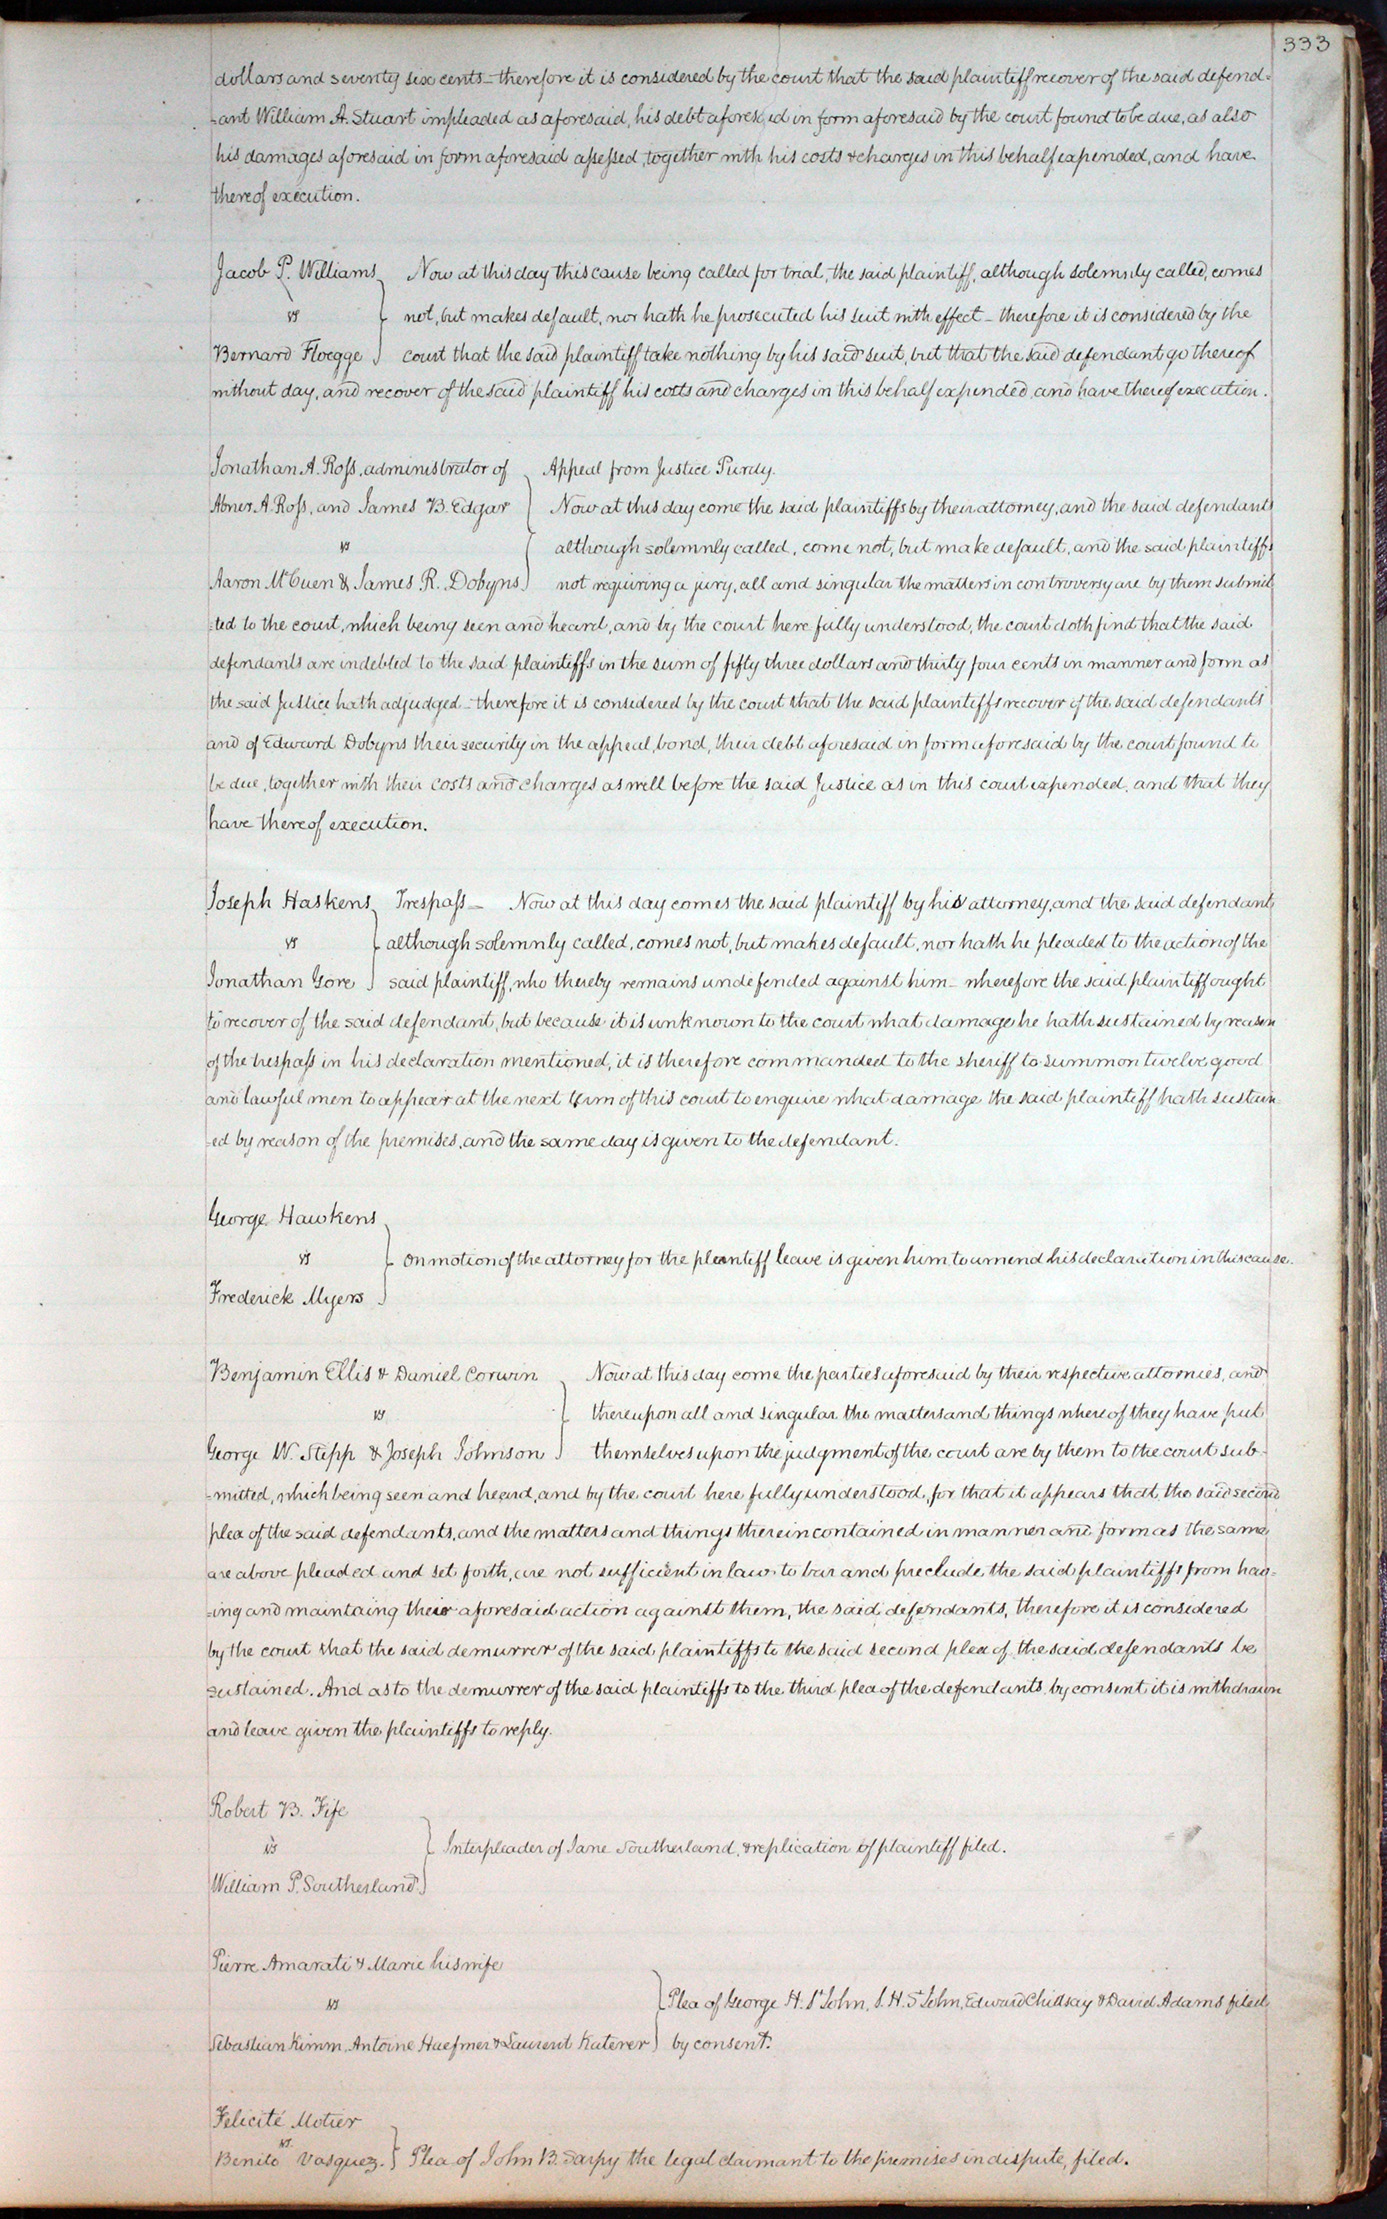 333
dollars and seventy six cents - therefore it is considered by the court that the said plaintiff recover of the said defend-
-ant William A. Stuart impleaded as aforesaid, his debt aforesaid in form aforesaid by the court found to be due, as also
his damages aforesaid in form aforesaid assessed, together with his costs & charges in this behalf expended, and have
thereof execution.
Jacob P. Williams Now at this day this cause being called for trial, the said plaintiff, although solemnly called, comes
vs not, but makes default, nor hath he prosecuted his suit with effect - therefore it is considered by the
Bernard Floegge court that the said plaintiff take nothing by his said suit, but that the said defendant go thereof
without day, and recover of the said plaintiff his costs and charges in this behalf expended and have thereof execution.
Jonathan A. Ross, administrator of Appeal from Justice Purdy.
Abner A. Ross, and James B. Edgar Now at this day come the said plaintiffs by their attorney, and the said defendants
vs although solemnly called, come not, but make default, and the said plaintiffs
Aaron McCuen & James R. Dobyns not requiring a jury, all and singular the matters in controversy are by them submit
-ted to the court, which being seen and heard, and by the court here fully understood, the court doth find that the said
defendants are indebted to the said plaintiffs in the sum of fifty three dollars and thirty four cents in manner and form as
the said Justice hath adjudged - therefore it is considered by the court that the said plaintiffs recover of the said defendants
and of Edward Dobyns their security in the appeal bond, their debt aforesaid in form aforesaid by the court found to
be due, together with their costs and charges as well before the said Justice as in this court expended, and that they
have thereof execution.
Joseph Haskens Trespass - Now at this day comes the said plaintiff by his attorney, and the said defendant,
vs although solemnly called, comes not, but makes default, nor hath he pleaded to the action of the
Jonathan Gore said plaintiff, who thereby remains undefended against him - wherefore the said plaintiff ought
to recover of the said defendant, but because it is unknown to the court what damage he hath sustained by reason
of the trespass in his declaration mentioned, it is therefore commanded to the sheriff to summon twelve good
and lawful men to appear at the next term of this court to enquire what damage the said plaintiff hath sustain-
-ed by reason of the premises, and the same day is given to the defendant.
George Hawkens
vs On motion of the attorney for the plaintiff leave is given him to amend his declaration in this cause.
Frederick Myers
Benjamin Ellis & Daniel Corwin Now at this day come the parties aforesaid by their respective attornies, and
vs thereupon all and singular the matters and things whereof they have put
George W. Stepp & Joseph Johnson themselves upon the judgment of the court are by them to the court sub-
-mitted, which being seen and heard, and by the court here fully understood, for that it appears that the said second
plea of the said defendants, and the matters and things therein contained in manner and form as the same
are above pleaded and set forth, are not sufficient in law to bar and preclude the said plaintiffs from hav-
-ing and maintaing their aforesaid action against them, the said defendants, therefore it is considered
by the court that the said demurrer of the said plaintiffs to the said second plea of the said defendants be
sustained. And as to the demurrer of the said plaintiffs to the third plea of the defendants by consent it is withdrawn
and leave given the plaintiffs to reply.
Robert B. Fife
vs Interpleader of Jane Southerland, & replication of plaintiff filed.
William P. Southerland
Pierre Amarati & Marie his wife
vs Plea of George H. St John, S. H. St John, Edward Chillsay & David Adams filed
Sebastian Kimm, Antoine Haefner & Laurent Katerer by consent.
Felicité Motier
vs
Benito Vasquez. Plea of John B. Sarpy the legal claimant to the premises in dispute, filed.